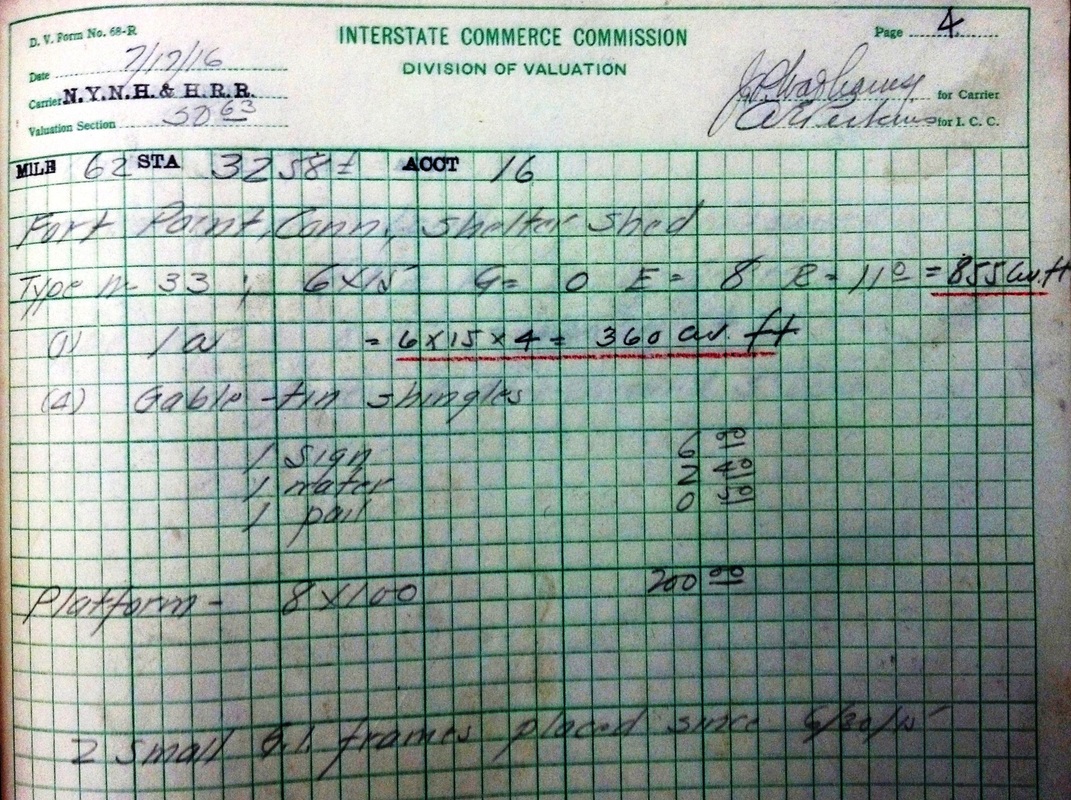 D. V. Form No. 68-R
INTERSTATE COMMERCE COMMISSION
DIVISION OF VALUATION
Page 4.
Date 7/17/16
Carrier N.Y.N.H. & H.R.R.
Valuation Section 50 63
for Carrier
for I. C. C.
MILE 62 STA 3258± ACCT 16
Fort Point, Conn, Shelter Shed
Type No 33 ; 6X15 G= 0 E= 8 R= 11⁰ = 855 cu.ft
(1) 1a = 6x15x4 = 360 cu. ft
(4) Gable - tin shingles
1 Sign 6 00
1 2 40
1 pail 0 50
Platform - 8X100 200 00
2 Small frames placed since 6/30/15